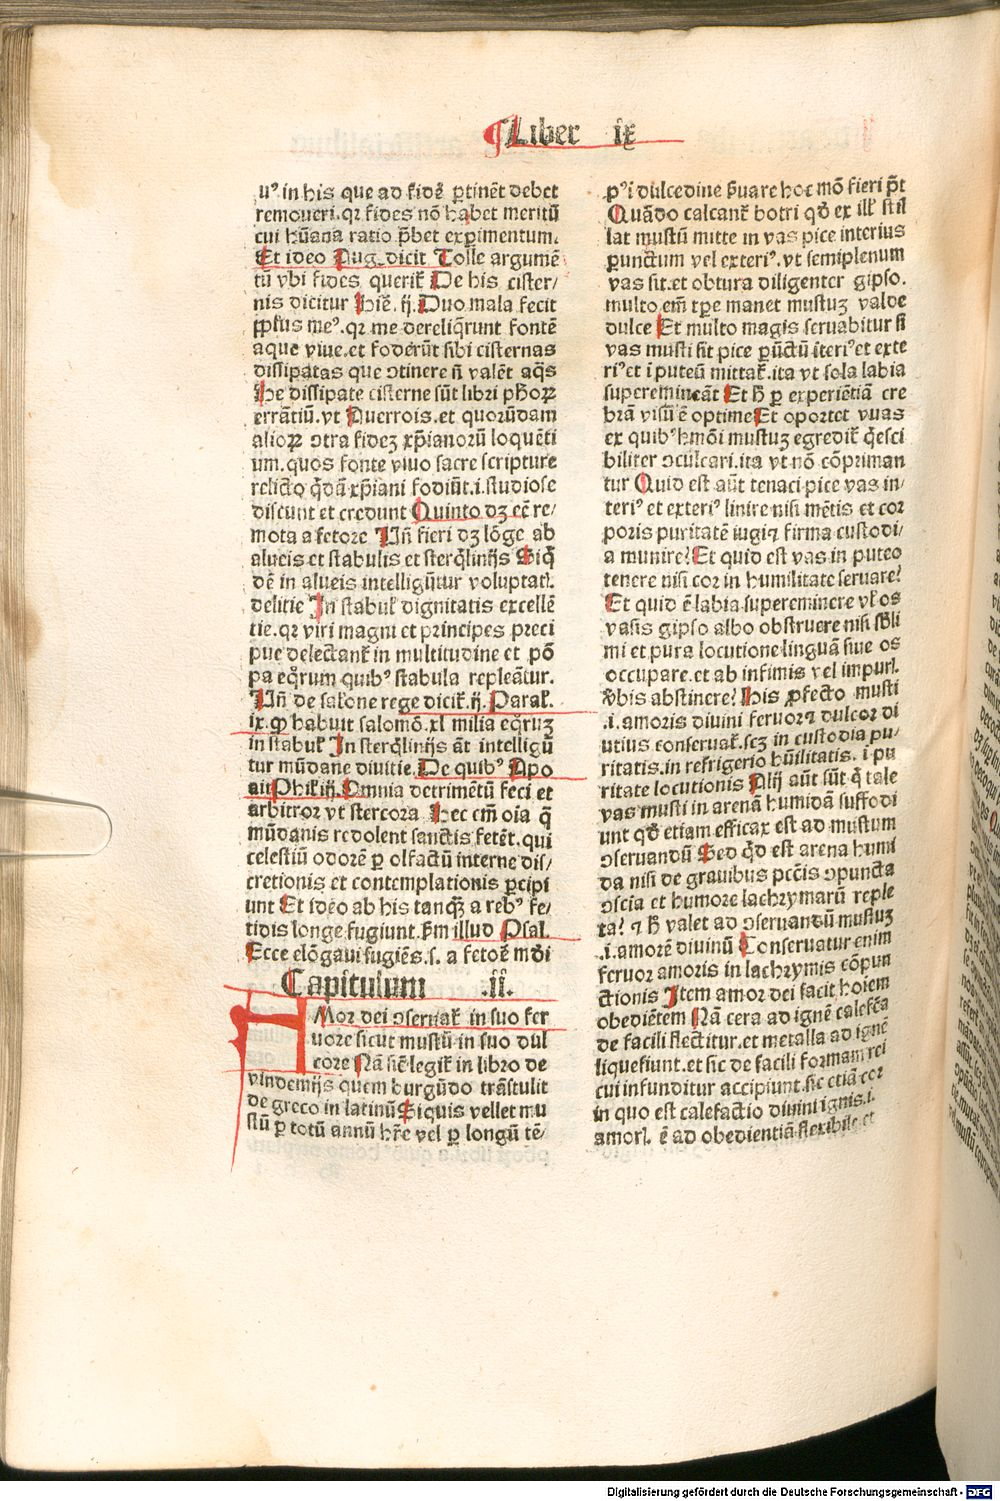 ¶Liber ix
uꝰ in his que ad fidē ꝑtinēt debet
remoueri.qꝛ fides nō habet meritū
cui hūana ratio p̄bet experimentum.
Et ideo Aug. dicit Tolle argumē
tū vbi fides querit᷑ De his cister/
nis dicitur Hie͂. ij. Duo mala fecit
ppl̄us meꝰ.qꝛ me dereliq̄runt fontē
aque viue.et foderūt sibi cisternas
dissipatas que ɔtinere n̄ valēt aq̄s
He dissipate cisterne sūt libri ph̄oꝝ
errātiū.vt Auerrois.et quorūdam
alioꝝ ɔtra fideꝫ xp̄ianorū loquēti
um.quos fonte viuo sacre scripture
relicto q̄dā xp̄iani fodiūt.i.studiose
discunt et credunt Quinto dꝫ eē re/
mota a fetore Jn̄ fieri dꝫ lōge ab
alueis et stabulis et sterq̄linijs Siq̄
dē in alueis intelligūtur voluptatꝭ.
delitie Jn stabul᷑ dignitatis excellē
tie.qꝛ viri magni et principes preci
pue delectant᷑ in multitudine et pō
pa eq̄rum quibꝰ stabula repleātur.
Jn̄ de salōne rege dicit᷑.ij.Paral᷑.
ix.ꝙ habuit salomō.xl milia eq̄ruꝫ
in stabul᷑ Jn sterq̄linijs āt intelligū
tur mūdane diuitie.De quibꝰ Apo
ait Phil᷑.iij.Omnia detrimētū feci et
arbitror vt stercora Hec em̄ oīa q̄
mūdanis redolent sanctis fetēt.qui
celestiū odorē ꝑ olfactū interne dis/
cretionis et contemplationis ꝑcipi
unt Et ideo ab his tanqꝫ̄ a rebꝰ fe/
tidis longe fugiunt.ẜm illud Psal.
Ecce elōgaui fugiēs.s. a fetoē mūdi
Capitulum .ii.
AMor dei ɔseruat᷑ in suo fer
uore sicut mustū in suo dul
core Nā sic̄ legit᷑ in libro de
vindemijs quem burgūdo trāstulit
de greco in latinū Siquis vellet mu
stū ꝑ totū annū hr̄e vel ꝑ longū tē/
pꝰ i dulcedine ẜuare hoc mō fieri pt̄
Quādo calcant᷑ botri qd̄ ex ill᷑ stil
lat mustū mitte in vas pice interius
ꝑunctum vel exteriꝰ.vt semiplenum
vas sit.et obtura diligenter gipso.
multo em̄ tꝑe manet mustuꝫ valde
dulce Et multo magis seruabitur si
vas musti sit pice ꝑūctū iteriꝰ et exte
riꝰ et i puteū mittat᷑.ita vt sola labia
superemineāt Et h̄ ꝑ experiētiā cre
brā visū ē optime Et oportet vuas
ex quibꝰ hmōi mustuꝫ egredit᷑ q̄esci
biliter ɔculcari.ita vt nō cōpriman
tur Quid est aūt tenaci pice vas in/
teriꝰ et exteriꝰ linire nisi mētis et cor
poris puritatē iugi ⁊ firma custodi/
a munire? Et quid est vas in puteo
tenere nisi cor in humilitate seruare?
Et quid ē labia supereminere vl᷑ os
vasis gipso albo obstruere nisi sb̄li
mi et pura locutione linguā siue os
occupare.et ab infimis vel impurꝭ.
v̄bis abstinere? His ꝓfecto musti
.i.amoris diuini feruor ⁊ dulcor di
utius conseruat᷑.scꝫ in custodia pu/
ritatis.in refrigerio hūilitatis. i pu
ritate locutionis Alij aūt sūt q̄ tale
vas musti in arenā humidā suffodi
unt qd̄ etiam efficax est ad mustum
ɔseruandū Sed qd̄ est arena humi
da nisi de grauibus pctīs ɔpuncta
ɔscīa et humore lachrymarū reple
ta? ⁊ h̄ valet ad ɔseruandū mustuꝫ
.i.amorē diuinū Conseruatur enim
feruor amoris in lachrymis cōpun
ctionis Jtem amor dei facit hoīem
obediētem Nā cera ad ignē calefca
de facili flectitur.et metalla ad ignē
liquefiunt.et sic de facili formam rei
cui infunditur accipiunt.sic etiā cor
in quo est calefactio diuini ignis.i.
amorꝭ. ē ad obedientiā flexibile et
Digitalisierung gefördert durch die Deutsche Forschungsgemeinschaft - DFG